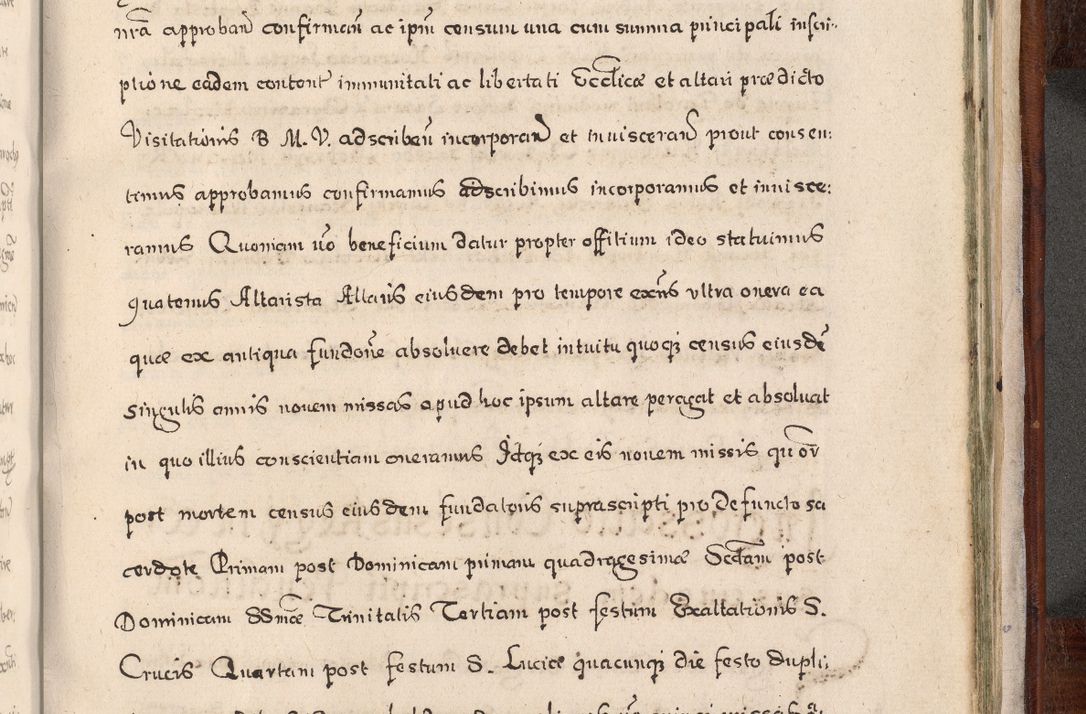 nrã approbañ confirmañ ac ipm̃ censum una cum summa principali inscri-
ptione eadem content̃ immunitati ac libertati Ecclicæ et altari prædicto
Visitationis B M. V. adscribeñ incorporañ et inviscerañ prout consen:
timus approbamus confirmamus adscribimus incorporamus et invisce:
ramus Quoniam ṽo beneficium datur propter offitium ideo statuimus
quatenus Altarista Altaris eiusdem pro tempore exñs ultra onera ea
quæ ex antiqua fundoñe absolvere debet intuitu quoqꝫ census eiusdẽ
singulis annis novem missas apud hoc ipsum altare peragat et absolvat
in quo illius conscientiam oneramus Idqꝫ ex eis novem missis quor̃
post mortem census eiusdem fundatoris suprascripti pro Defuncto sa
cerdote Primam post Dominicam primam quadragesimæ Scdam post
Dominicam SSmæ Trinitatis Tertiam post festum Exaltationis S.
Crucis Quartam post festum S. Luciæ quacunqꝫ die festo dupli: